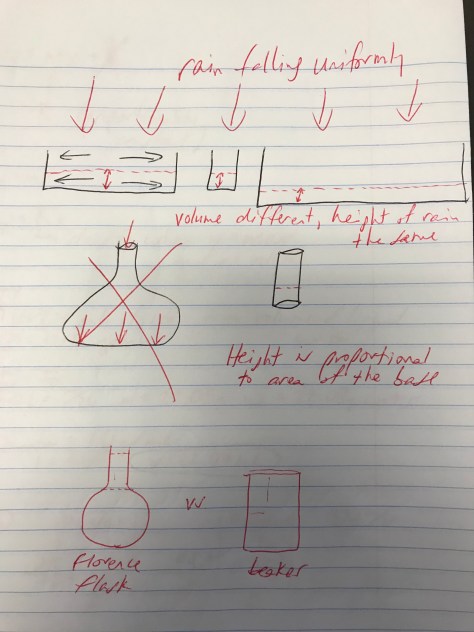 rain falling uniformly
volume different, height of rain
the same
Height is proportional
to area of the base
vs
florence
flask
beaker